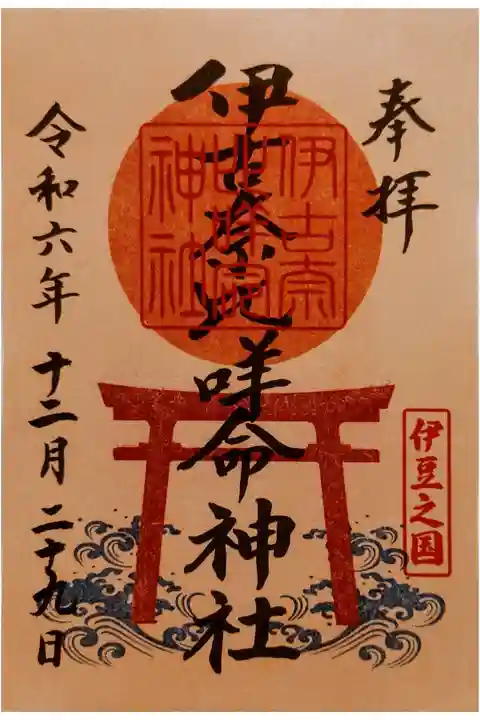 奉拝
伊豆之国
伊古奈比咩命神社
伊古奈
比咩命
神社
令和六年 十二月 二十九日